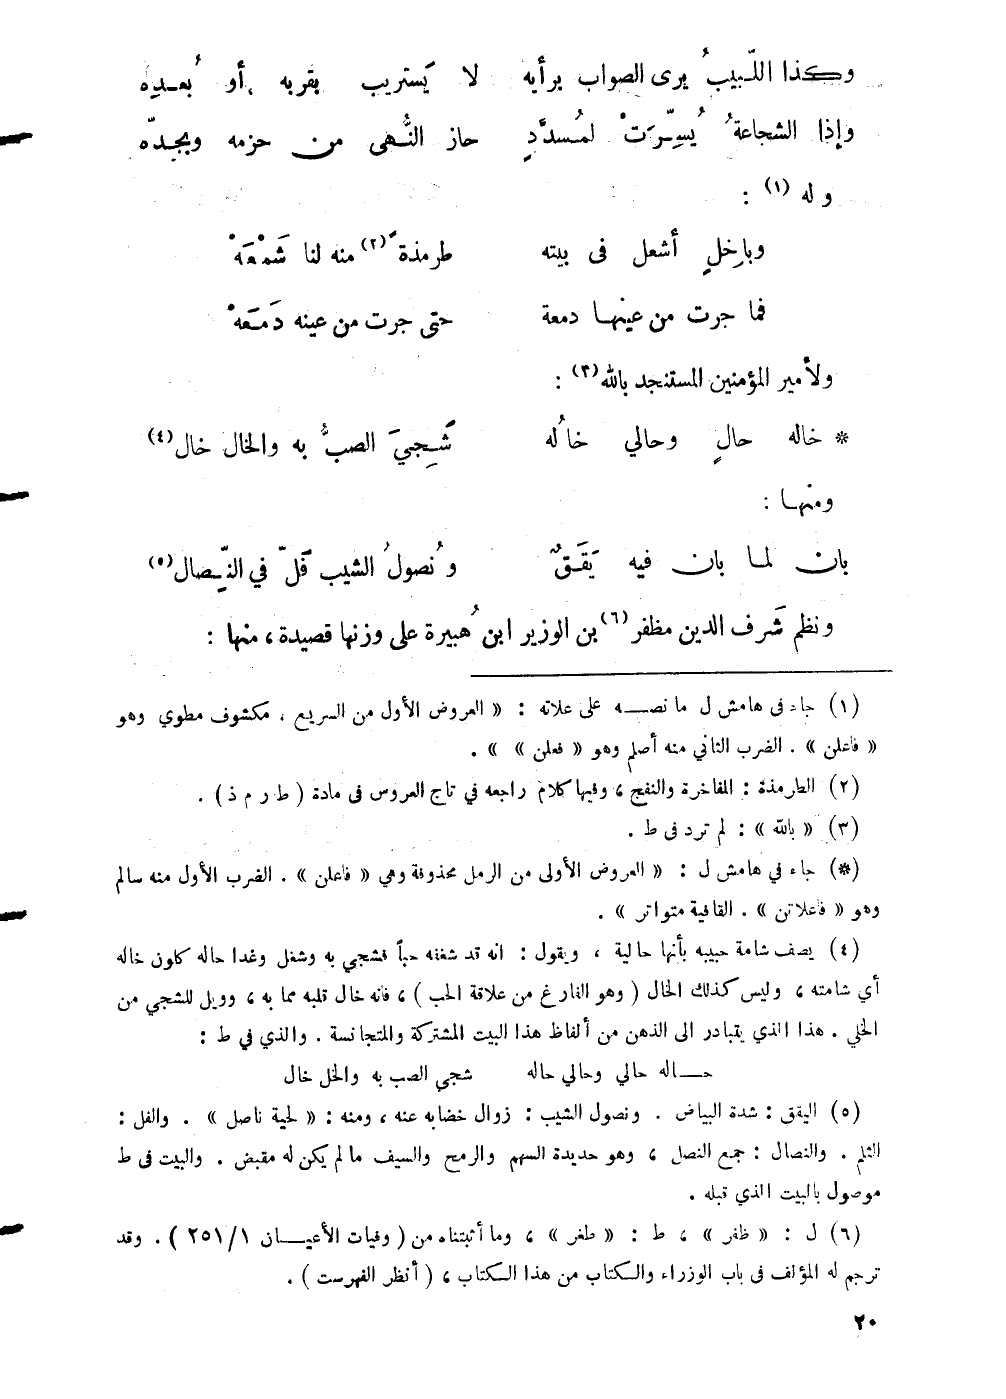 وكذا اللّبيبُ يرى الصواب برأيه لا يَستريب بقربه أو بُعـدِه
وإذا الشجاعةُ يُسِّرَتْ لمُسدَّدٍ حاز النُّهى من حزمه وبجِدّه
وله (١) :
وباخلٍ أشعل في بيته طرمذةً (٢) منه لنا شَمْعَهْ
فما جرت من عينها دمعة حتى جرت من عينه دَمعَهْ
ولأمير المؤمنين المستنجد بالله (٣) :
* خاله حالٍ وحالي خالُه شَجِيَ الصبُّ به والخال خال (٤)
ومنها :
بان لما بان فيه يَقَقٌ ونُصولُ الشيب فَلّ في النِّصال (٥)
ونظم شَرف الدين مظفر (٦) بن الوزير ابن هُبيرة على وزنها قصيدة ، منها :
(١) جاء في هامش ل ما نصه على علاته : « العروض الأول من السريع ، مكشوف مطوي وهو
« فاعلن » . الضرب الثاني منه أصلم وهو « فعلن » » .
(٢) الطرمذة : المفاخرة والنفج ، وفيها كلام راجعه في تاج العروس في مادة ( ط ر م ذ ) .
(٣) « بالله » : لم ترد في ط .
(*) جاء في هامش ل : « العروض الأولى من الرمل محذوفة وهي « فاعلن » . الضرب الأول منه سالم
وهو « فاعلاتن » . القافية متواتر » .
(٤) يصف شامة حبيبه بأنها حالية ، ويقول : انه قد شغفه حباً فشجي به وشغل وغدا حاله كلون خاله
أي شامته ، وليس كذلك الخال ( وهو الفارغ من علاقة الحب ) ، فانه خال قلبه مما به ، وويل للشجي من
الخلي . هذا الذي يتبادر الى الذهن من ألفاظ هذا البيت المشتركة والمتجانسة . والذي في ط :
حاله حالي وحالي حاله شجي الصب به والخل خال
(٥) اليقق : شدة البياض . ونصول الشيب : زوال خضابه عنه ، ومنه : « لحية ناصل » . والفل :
الثلم . والنصال : جمع النصل ، وهو حديدة السهم والرمح والسيف ما لم يكن له مقبض . والبيت في ط
موصول بالبيت الذي قبله .
(٦) ل : « ظفر » ، ط : « طغر » ، وما أثبتناه من ( وفيات الأعيان ٢٥١/١ ) . وقد
ترجم له المؤلف في باب الوزراء والكتاب من هذا الكتاب ، ( أنظر الفهرست ) .
٢٠